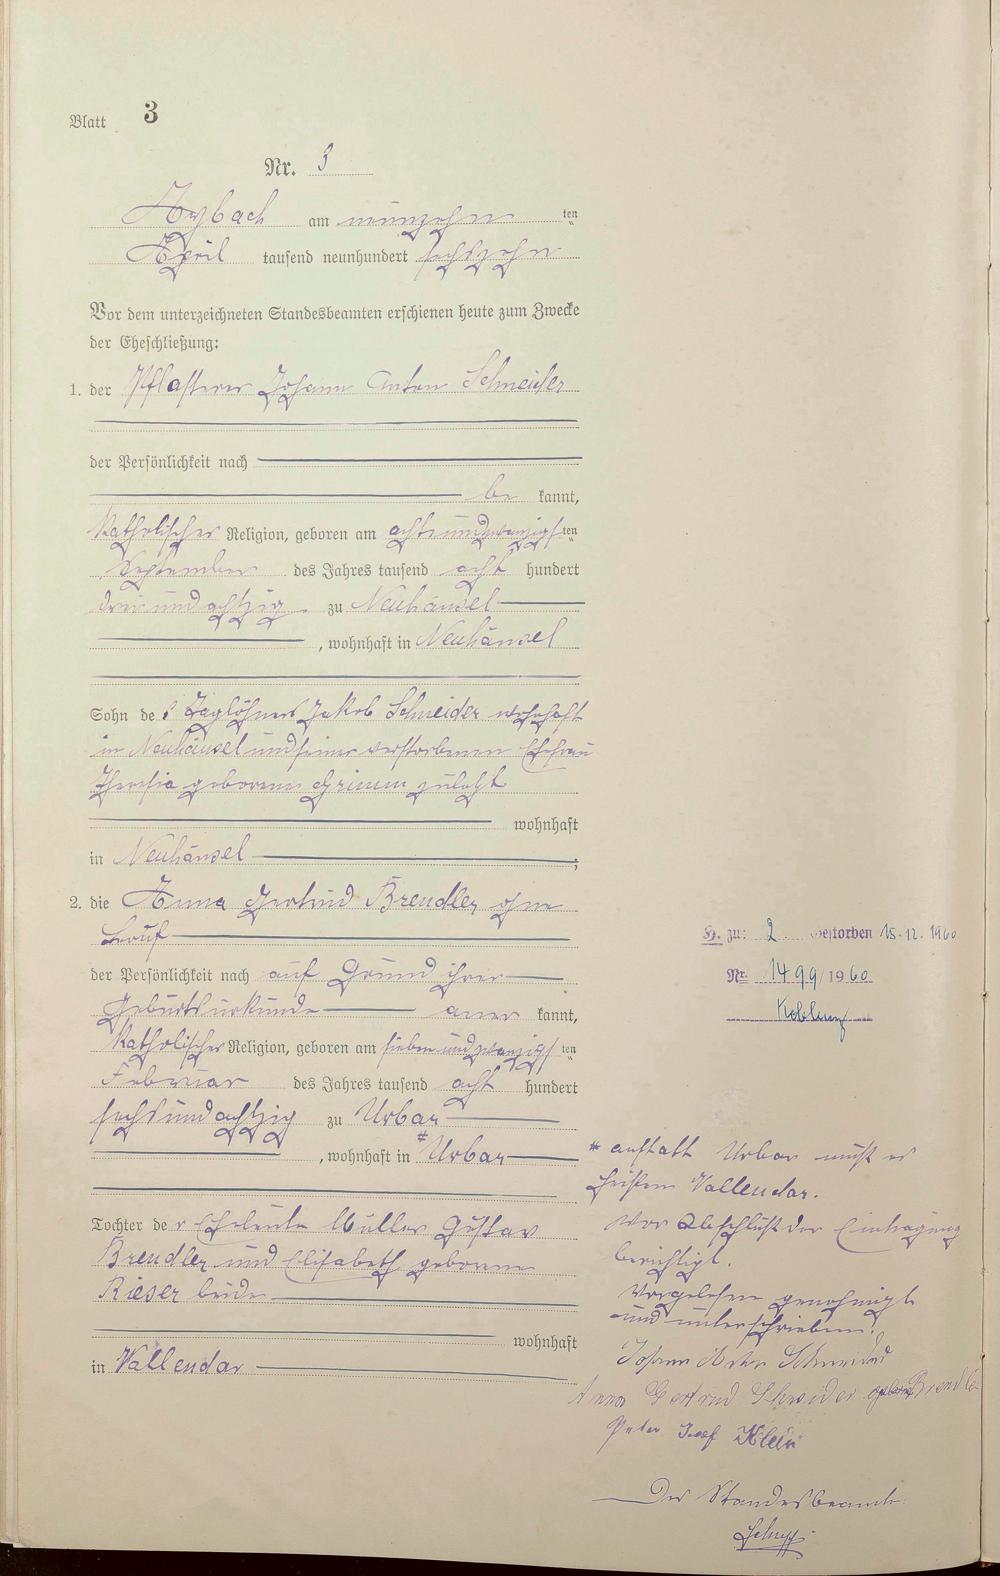 Blatt 3
Nr. 3
Arzbach am neunzehn ten
April tausend neunhundert sechszehn
Vor dem unterzeichneten Standesbeamten erschienen heute zum Zwecke
der Eheschließung:
1. der Pflasterer Johann Anton Schneider
der Persönlichkeit nach
be kannt,
katholischer Religion, geboren am achtundzwanzigsten
September des Jahres tausend acht hundert
dreiundachtzig zu Neuhäusel
, wohnhaft in Neuhäusel
Sohn des Taglöhners Jakob Schneider wohnhaft
in Neuhäusel und seiner verstorbenen Ehefrau
Theresia geborenen Grimm zuletzt
wohnhaft
in Neuhäusel ;
2. die Anna Gertrud Brendler ohne
Beruf
der Persönlichkeit nach auf Grund ihrer
Geburtsurkunde aner kannt,
katholischer Religion, geboren am siebenundzwanzigsten
Februar des Jahres tausend acht hundert
sechsundachtzig zu Urbar
, wohnhaft in # Urbar
Tochter der Eheleute Müller Gustav
Brendler und Elisabeth geborene
Rieser beide
wohnhaft
in Vallendar
H. zu: 2. Gestorben 15.12.1960
Nr. 1499/1960
Koblenz
# anstatt Urbar muß es
heißen Vallendar.
Vor Abschluß der Eintragung
berichtigt.
Vorgelesen genehmigt
und unterschrieben.
Johann Anton Schneider
Anna Gertrud Schneider geborne Brendler
Peter Josef Klein
Der Standesbeamte.